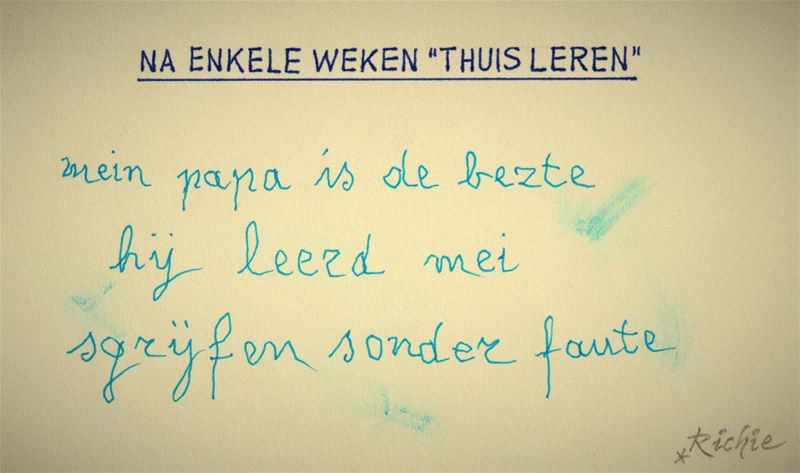 NA ENKELE WEKEN "THUIS LEREN"
mein papa is de bezte
hij leerd mei
sgrijfen sonder faute
*Richie